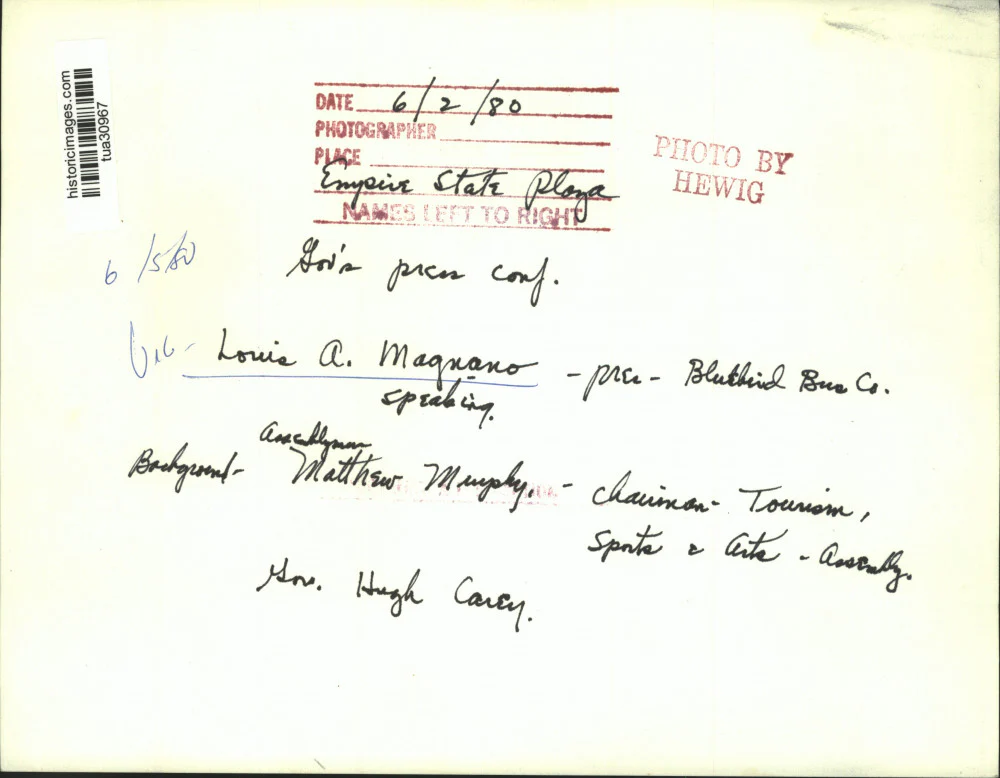 historicimages.com
tua30967
DATE 6/2/80
PHOTOGRAPHER
PLACE
Empire State Plaza
NAMES LEFT TO RIGHT
PHOTO BY
HEWIG
6/5/80
Gov's press conf.
Louis A. Magnano - pres - Bluebird Bus Co.
speaking.
Assemblyman
Background - Matthew Murphy, - chairman - Tourism,
Sports & Arts - Assembly.
Gov. Hugh Carey.